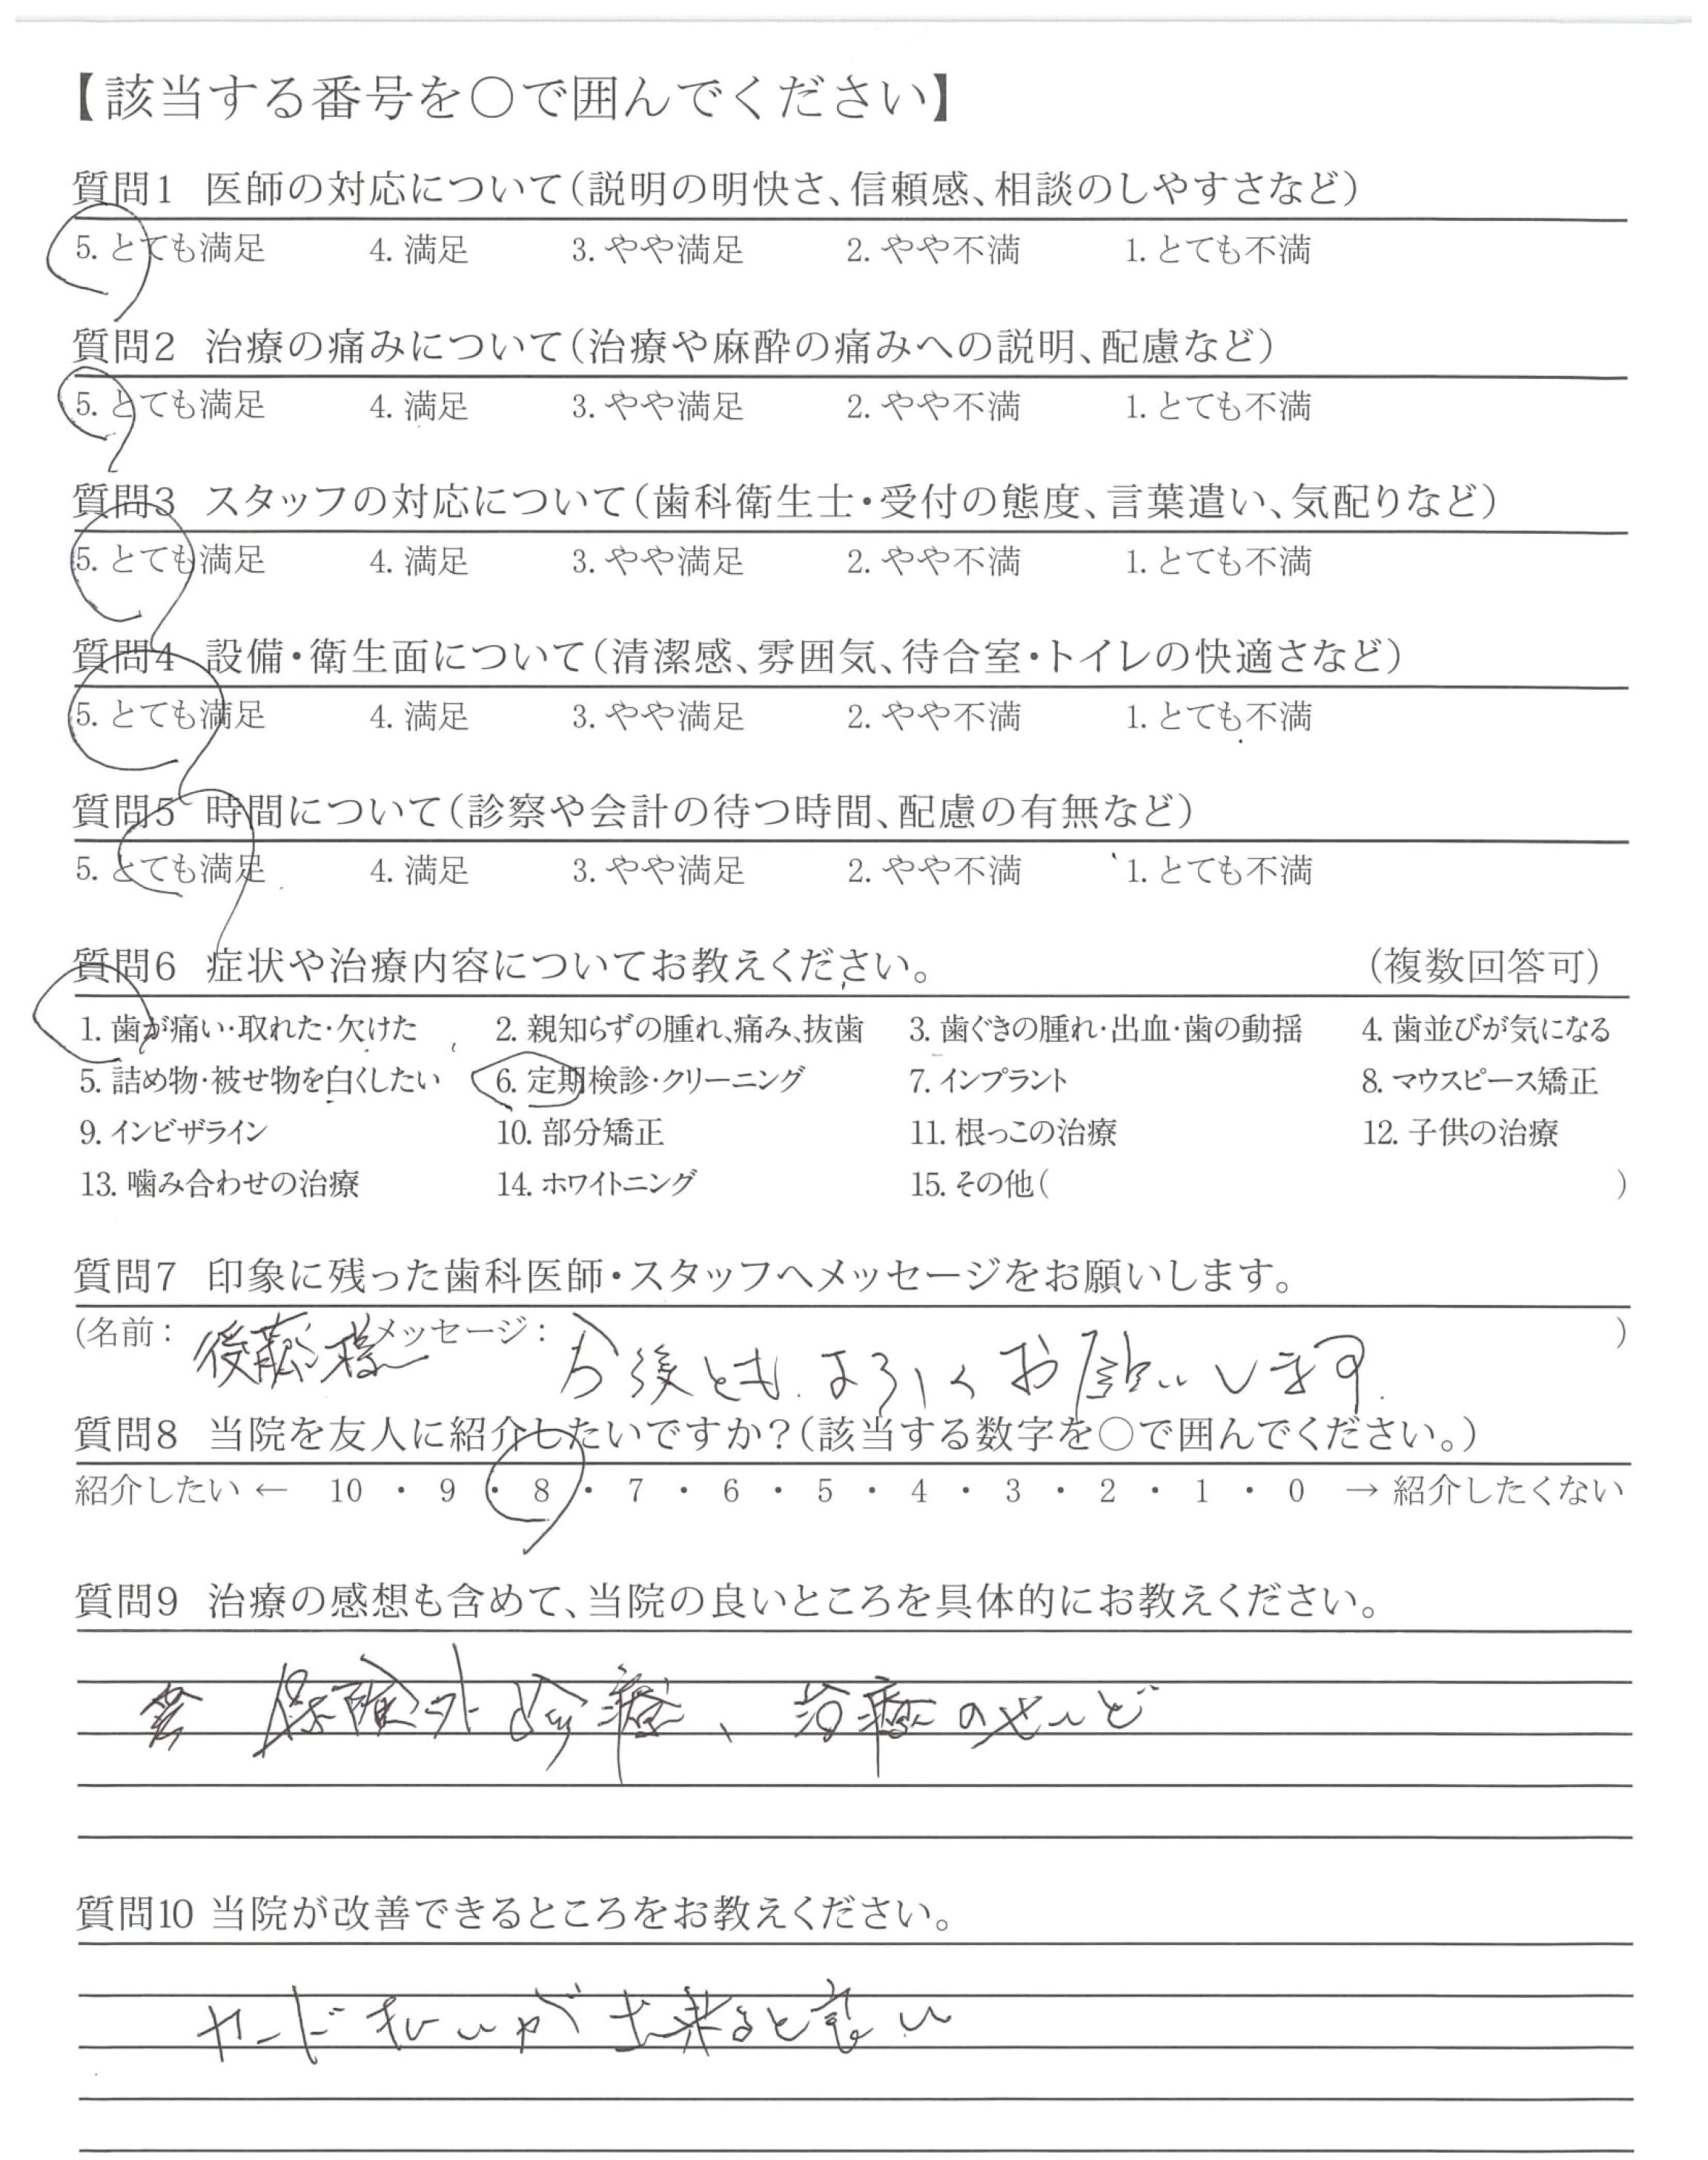 【該当する番号を○で囲んでください】
質問1 医師の対応について(説明の明快さ、信頼感、相談のしやすさなど)
5. とても満足 4. 満足 3. やや満足 2. やや不満 1. とても不満
質問2 治療の痛みについて(治療や麻酔の痛みへの説明、配慮など)
5. とても満足 4. 満足 3. やや満足 2. やや不満 1. とても不満
質問3 スタッフの対応について(歯科衛生士・受付の態度、言葉遣い、気配りなど)
5. とても満足 4. 満足 3. やや満足 2. やや不満 1. とても不満
質問4 設備・衛生面について(清潔感、雰囲気、待合室・トイレの快適さなど)
5. とても満足 4. 満足 3. やや満足 2. やや不満 1. とても不満
質問5 時間について(診察や会計の待つ時間、配慮の有無など)
5. とても満足 4. 満足 3. やや満足 2. やや不満 1. とても不満
質問6 症状や治療内容についてお教えください。 (複数回答可)
1. 歯が痛い・取れた・欠けた 2. 親知らずの腫れ、痛み、抜歯 3. 歯ぐきの腫れ・出血・歯の動揺 4. 歯並びが気になる
5. 詰め物・被せ物を白くしたい 6. 定期検診・クリーニング 7. インプラント 8. マウスピース矯正
9. インビザライン 10. 部分矯正 11. 根っこの治療 12. 子供の治療
13. 噛み合わせの治療 14. ホワイトニング 15. その他( )
質問7 印象に残った歯科医師・スタッフへメッセージをお願いします。
(名前: 後藤様 メッセージ: 今後とも よろしくお願いします )
質問8 当院を友人に紹介したいですか?(該当する数字を○で囲んでください。)
紹介したい ← 10 ・ 9 ・ 8 ・ 7 ・ 6 ・ 5 ・ 4 ・ 3 ・ 2 ・ 1 ・ 0 → 紹介したくない
質問9 治療の感想も含めて、当院の良いところを具体的にお教えください。
保険外診療、治療の
質問10 当院が改善できるところをお教えください。
カード払いが出来ると良い